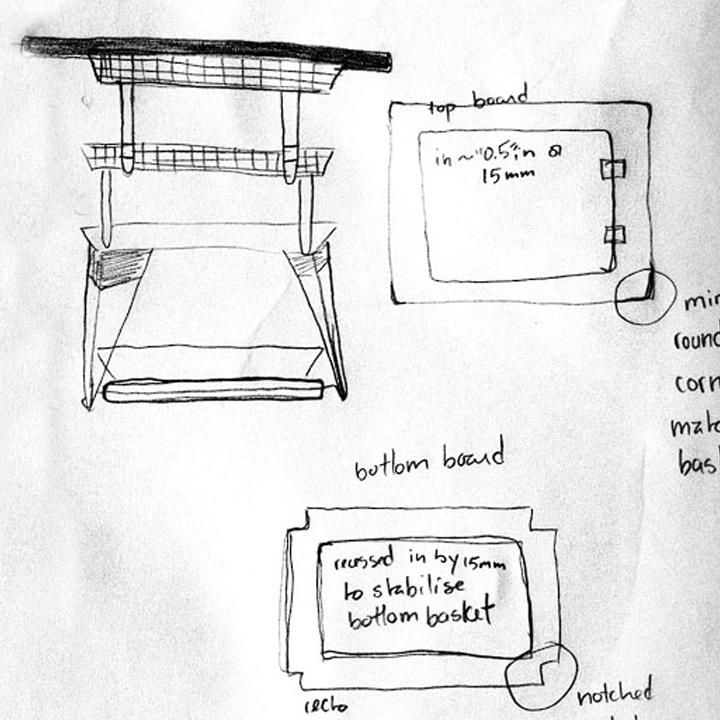 top board
in ~"0.5"in @
15mm
round
corn
bottom board
recessed in by 15mm
to stabilise
bottom basket
notched